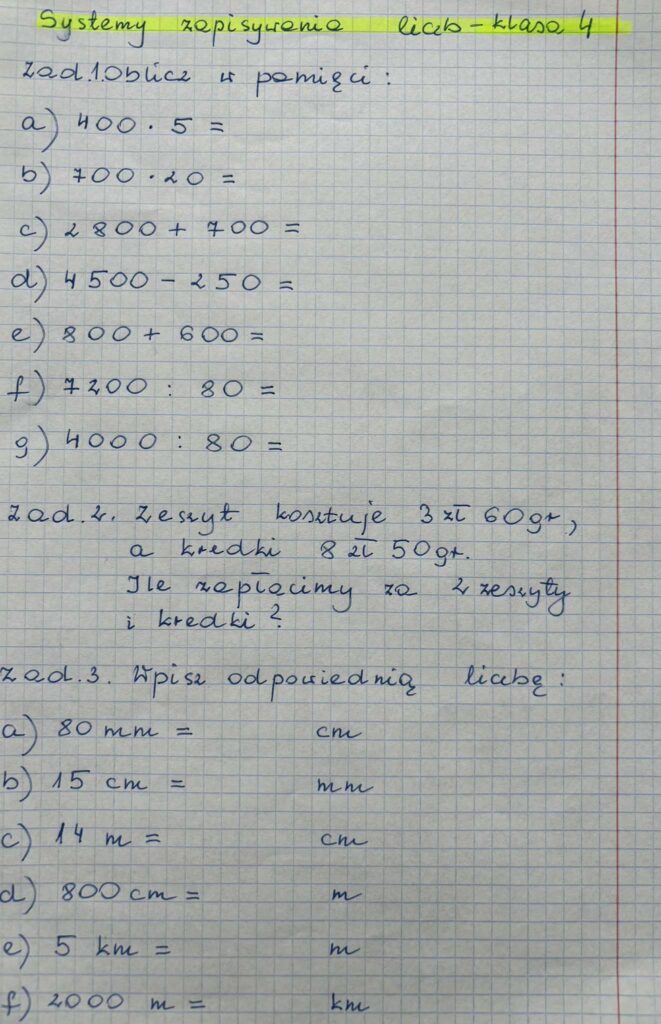 Systemy zapisywania liczb - klasa 4
Zad.1. Oblicz w pamięci:
a) 400 · 5 =
b) 700 · 20 =
c) 2800 + 700 =
d) 4500 - 250 =
e) 800 + 600 =
f) 7200 : 80 =
g) 4000 : 80 =
Zad.2. Zeszyt kosztuje 3 zł 60gr,
a kredki 8 zł 50gr.
Ile zapłacimy za 2 zeszyty
i kredki?
Zad.3. Wpisz odpowiednią liczbę:
a) 80 mm = cm
b) 15 cm = mm
c) 14 m = cm
d) 800 cm = m
e) 5 km = m
f) 2000 m = km